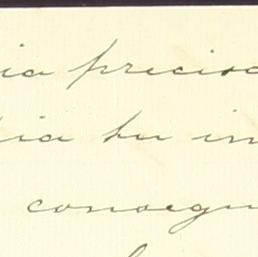 ia precisa
ia su in
consegu